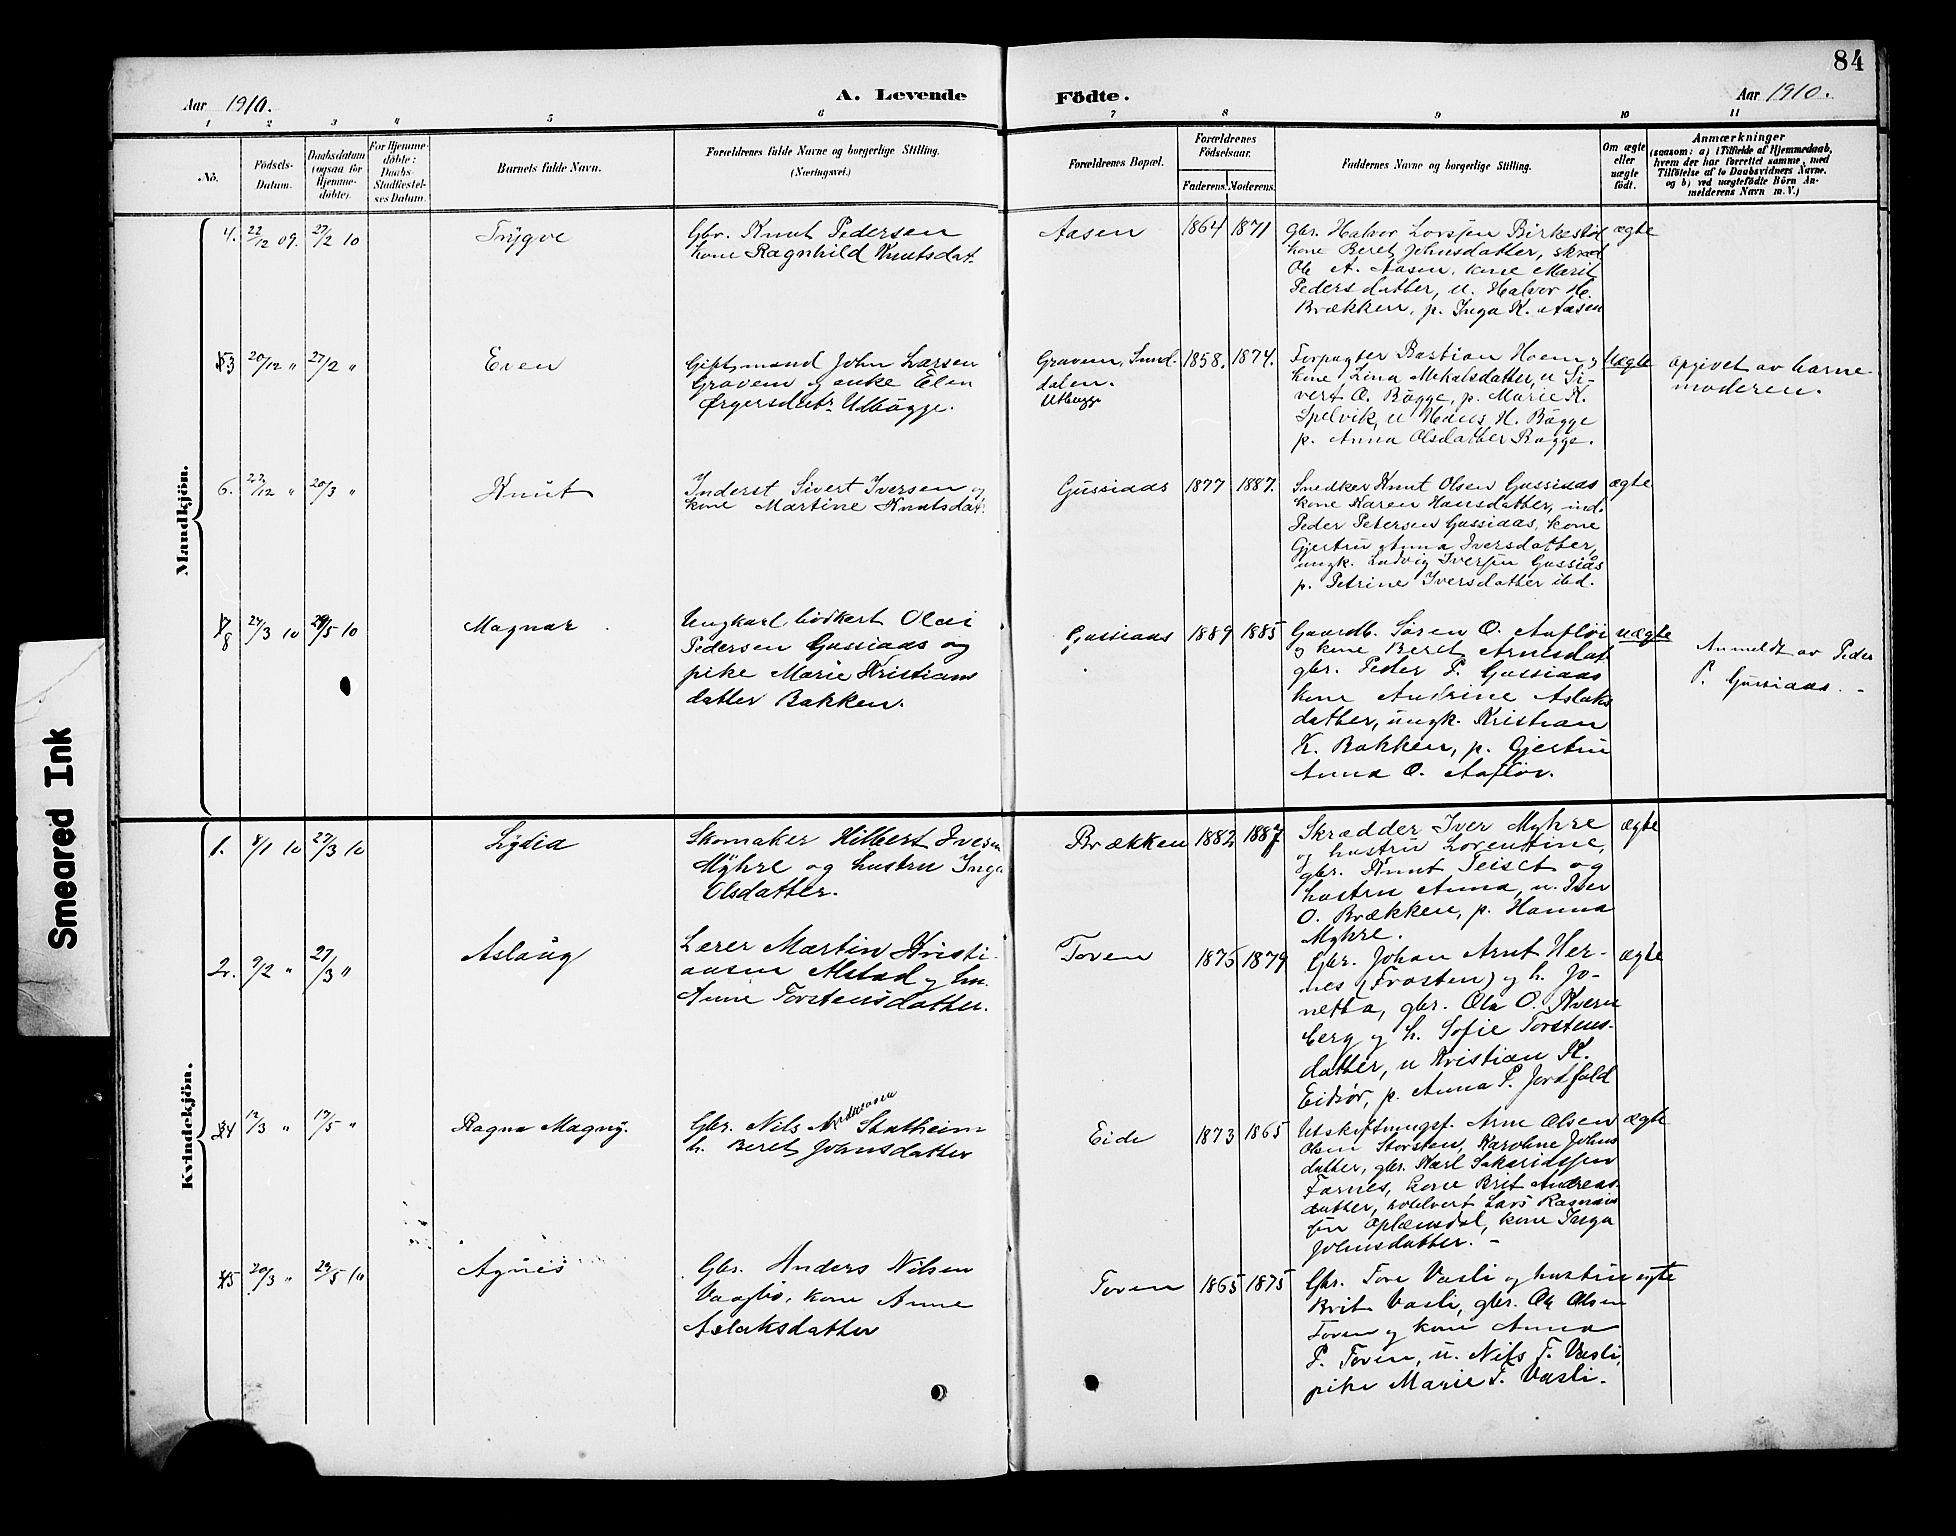 84
Aar 1910.
A. Levende
Födte.
Aar 1910.
1 2 3 4 5 6 7 8 9 10 11
No.
Födsels-
Datum.
Daabsdatum
(ogsaa for
Hjemme-
döbte).
For Hjemme-
döbte:
Daabs-
Stadfæstel-
ses Datum.
Barnets fulde Navn.
Forældrenes fulde Navne og borgerlige Stilling.
(Næringsvei.)
Forældrenes Bopæl.
Forældrenes
Födselsaar.
Faderens.
Moderens.
Faddernes Navne og borgerlige Stilling.
Om ægte
eller
uægte
födt.
Anmærkninger
(saasom: a) i Tilfælde af Hjemmedaab,
hvem der har forrettet samme, med
Tilföielse af to Daabsvidners Navne,
og b) ved uægtefödte Börn An-
melderens Navn m. V.)
Mandkjön.
4. 22/12 09. 27/2 10
Trygve
Gbr. Knut Pedersen
kone Ragnhild Knutsdat.
Aasen
1864 1871
gbr. Halvor Larsen Birkestøl
kone Beret Johnsdatter, skræd
Ole A. Aasen, kone Marit
Pedersdatter, u. Halvor H.
Brækken, p. Inga K. Aasen
ægte
3 20/12 " 27/2 "
Even
Giftmand John Larsen
Gravem og enke Elen
Ørgersdatr Utbøgge.
Gravem, Sund-
dalen.
Utbøgge
1858. 1874.
Forpagter Bastian Hoem og
kone Lina Mekalsdatter, u Si-
vert O. Bøgge, p. Marie K.
Spelvik, u Hans H. Bøgge
p. Anna Olsdatter Bøgge.
Uægte
Opgivet av barne-
moderen.
6. 22/12 " 20/3 "
Knut
Inderst Sivert Iversen og
kone Martine Knutsdat.
Gussiaas
1877 1887.
Snedker Knut Olsen Gussiaas
kone Karen Hansdatter, ind.
Peder Petersen Gussiaas, kone
Gjertru Anna Iversdatter,
ungk. Ludvig Iversen Gussiås
p. Petrine Iversdatter ibd.
ægte
8 27/3 10 29/5 10
Magnar
Ungkarl, bødkert Olai
Pedersen Gussiaas og
pike Marie Kristians
datter Bakken.
Gussiaas
1889 1885
Gaardb. Søren O. Aafløi
og kone Beret Arnesdat
gbr. Peder P. Gussiaas
kone Andrine Aslaks
datter, ungk. Kristian
K. Bakken, p. Gjertru
Anna O. Aafløv.
uægte
Anmeldt av Peder
P. Gussiaas. -
Kvindekjön.
1. 8/1 10 27/3 10
Lydia
Skomaker Hilbert Iversen
Myhre og hustru Inga
Olsdatter.
Brækken
1882 1887
Skrædder Iver Myhre
og hustru Lorentine,
gbr. Knut Teiset og
hustru Anna, u. Iver
O. Brækken, p. Hanna
Myhre.
ægte
2. 9/2 " 27/3 "
Aslaug
Lærer Martin Kristi-
ansen Alstad og hu.
Anne Torstensdatter.
Toven
1875 1879
Gbr. Johan Arnt Her-
nes (Frosten) og h. Jo-
netta, gbr. Ole O. Kvern
berg og h. Sofie Torstens-
datter, u Kristian K.
Eidsør, p. Anna P. Jordfald
ægte
4 12/3 " 17/5 "
Ragna Magny.
Gbr. Nils Andreassen Statheim
h. Beret Johnsdatter
Eide
1873 1865
Utskiftningsf. Arne Olsen
Olsen Storsten, Karoline Johns
datter, gbr. Karl Sakariassen
Farnes, kone Brit Andreas
datter, Lars
kone Inga
Johnsdatter. -
ægte
5 20/3 " 29/5 10
Agnes
Gbr. Anders Nilsen
Vaagbø, kone Anne
Aslaksdatter
Toven
1865 1875
Gbr. Tore Vasli og hustru
Brit Vasli, gbr. Ole Olsen
Toven og kone Anna
P. Toven, u. Nils T. Vasli,
pike Marie T. Vasli.
egte
Smeared Ink